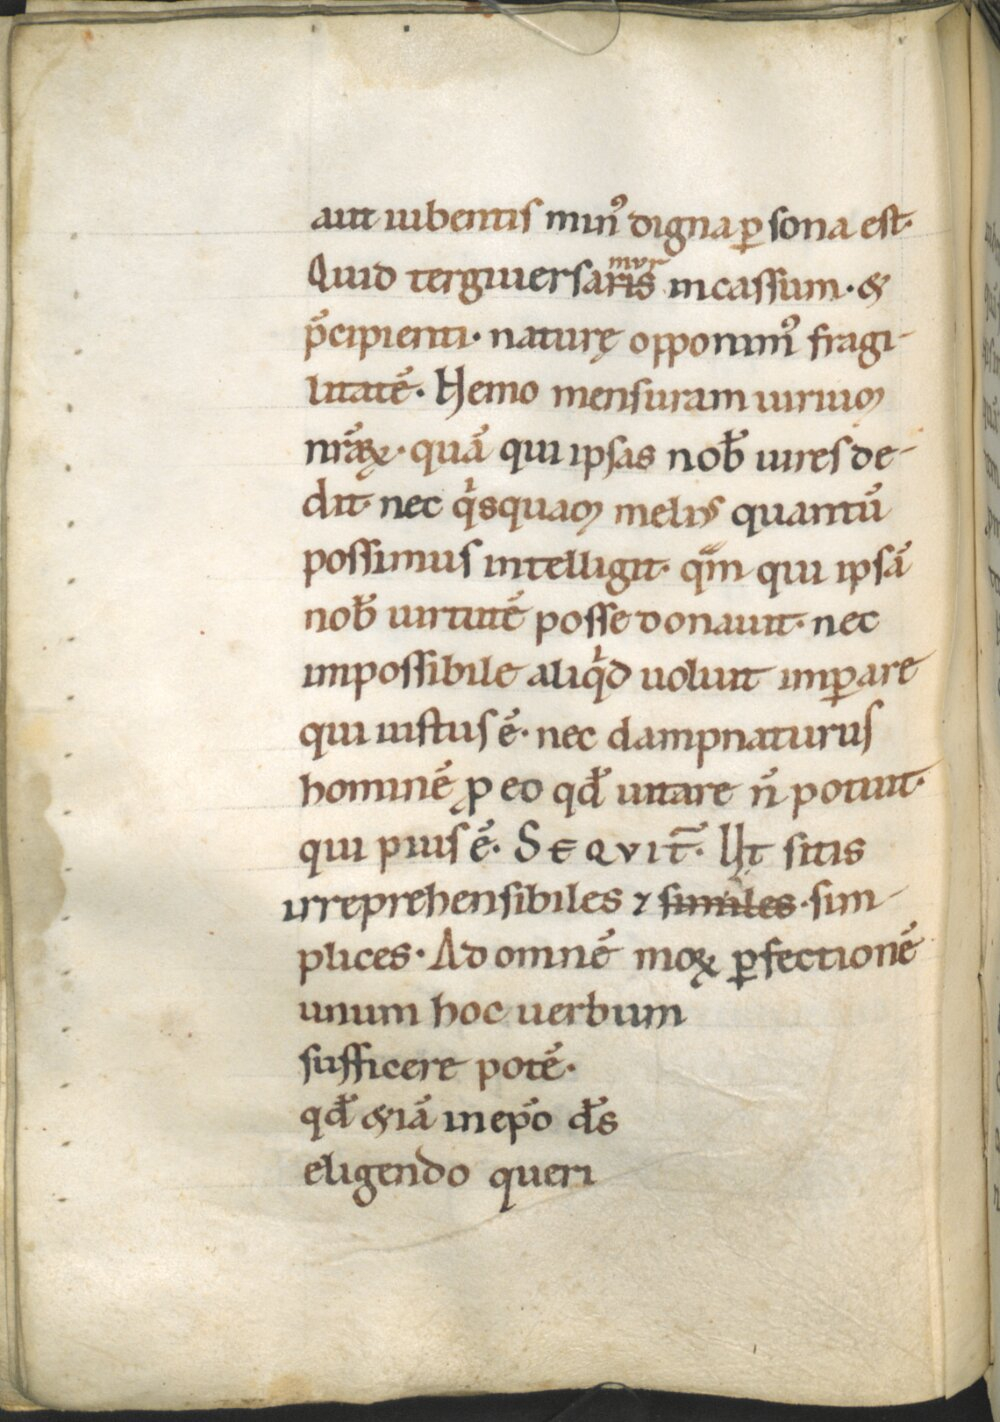 aut iubentis minꝰ digna ꝑsona est·
Quid tergiuersaris mur incassum· &
p̄cipienti· naturę opponimꝰ fragi-
litatē· Nemo mensuram uiriuꝫ
nr̄aꝝ· quā qui ipsas nob̄ uires de-
dit· nec qͥsquaꝫ meliꝰ quantū
possimus intelligit· qm̄ qui ipsā
nob̄ uirtutē posse donauit· nec
impossibile aliqͥd uoluit imꝑare
qui iustus ē· nec dampnaturus
hominē ꝓ eo qd̄ uitare n̄ potuit·
qui pius ē· SEQVIT̄· Ut sitis
irreprehensibiles ⁊ similes· sim-
plices· Ad omnē moꝝ ꝑfectionē
unum hoc uerbum
sufficere potē·
qd̄ &iā in ep̄o d̄s
eligendo queri